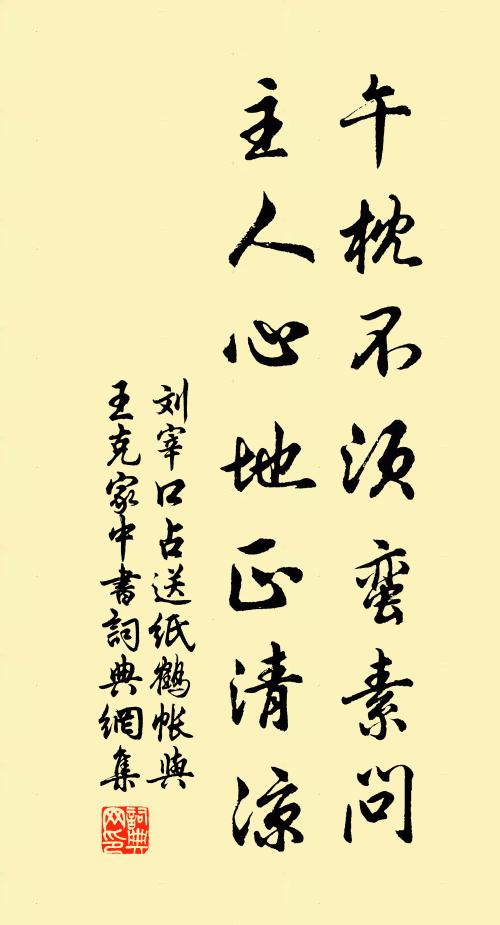 午枕不须蛮素问
主人心地正清凉
刘宰口占送纸鹤帐与
王克家中书詞典網集
詞典
网印